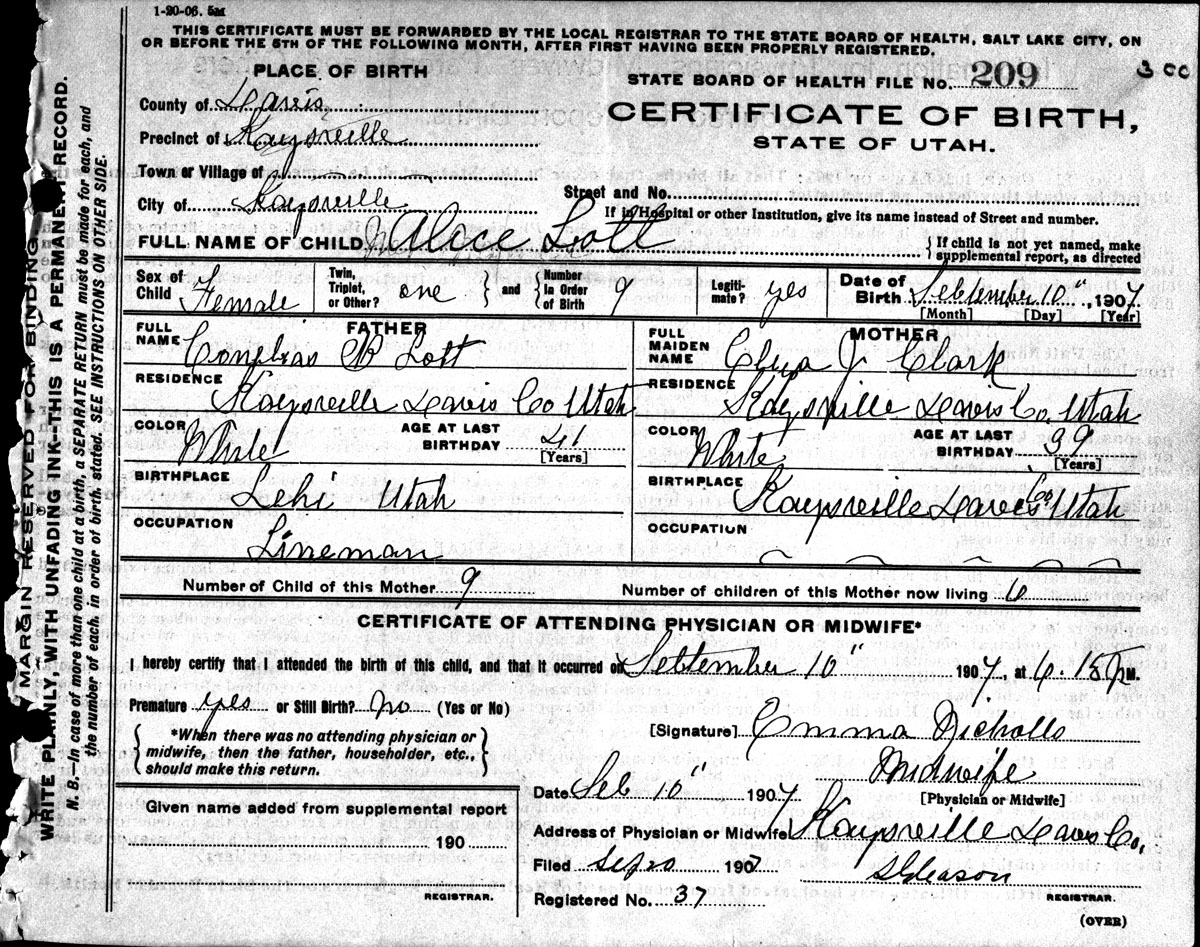 1-20-06. 5M
THIS CERTIFICATE MUST BE FORWARDED BY THE LOCAL REGISTRAR TO THE STATE BOARD OF HEALTH, SALT LAKE CITY, ON
OR BEFORE THE 5TH OF THE FOLLOWING MONTH, AFTER FIRST HAVING BEEN PROPERLY REGISTERED.
PLACE OF BIRTH
STATE BOARD OF HEALTH FILE No. 209
300
County of Davis
CERTIFICATE OF BIRTH,
Precinct of Kaysville
STATE OF UTAH.
Town or Village of
Street and No.
City of Kaysville
If in Hospital or other Institution, give its name instead of Street and number.
FULL NAME OF CHILD Alice Lott
If child is not yet named, make supplemental report, as directed
Sex of Child Female
Twin, Triplet, or Other? one and Number in Order of Birth 9
Legitimate? yes
Date of Birth September 10", 1907
[Month] [Day] [Year]
FATHER
FULL NAME
MOTHER
FULL MAIDEN NAME
B Lott
Eliza J Clark
RESIDENCE
Kaysville Davis Co Utah
RESIDENCE
Kaysville Davis Co. Utah
COLOR White
AGE AT LAST BIRTHDAY 41
[Years]
COLOR White
AGE AT LAST BIRTHDAY 39
[Years]
BIRTHPLACE
Lehi Utah
BIRTHPLACE
Kaysville Davis Co. Utah
OCCUPATION
Lineman
OCCUPATION
Number of Child of this Mother 9
Number of children of this Mother now living 6
CERTIFICATE OF ATTENDING PHYSICIAN OR MIDWIFE*
I hereby certify that I attended the birth of this child, and that it occurred on September 10" 1907, at 6.15 P M.
Premature yes or Still Birth? No (Yes or No)
*When there was no attending physician or
midwife, then the father, householder, etc.,
should make this return.
[Signature] Emma Nicholls
Midwife
[Physician or Midwife]
Date Seb 10" 1907
Given name added from supplemental report
190
REGISTRAR.
Address of Physician or Midwife Kaysville Davis Co.,
Filed Sep 20 1907
S Gleason
Registered No. 37
REGISTRAR.
(OVER)
MARGIN RESERVED FOR BINDING
WRITE PLAINLY, WITH UNFADING INK--THIS IS A PERMANENT RECORD.
N. B.—In case of more than one child at a birth, a SEPARATE RETURN must be made for each, and
the number of each, in order of birth, stated. SEE INSTRUCTIONS ON OTHER SIDE.